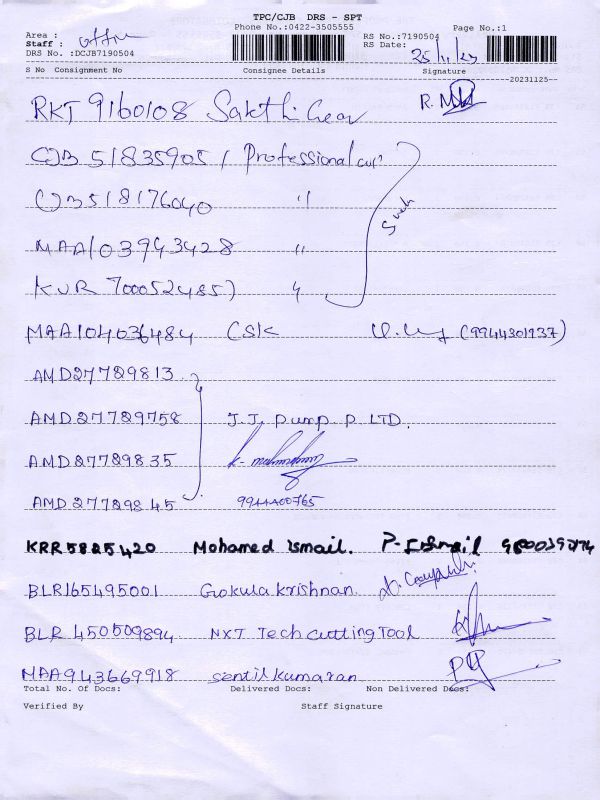 TPC/CJB DRS - SPT
Phone No.:0422-3505555
Page No.:1
Area : office
RS No.:7190504
Staff :
RS Date: 25/11/23
DRS No. :DCJB7190504
S No Consignment No Consignee Details Signature
20231125
RKT 9160108 Sakthi Gear
CJB 51835905 Professional
CJB 518176040 "
MAA103943428 "
KUR 700052485 "
MAA104036484 CSK (9944301937)
AMD27729813
AMD27729758 J.J. Pump. P. LTD.
AMD27729835
AMD27729845 9944400765
KRR5825420 Mohamed ismail. P-Ishmail
BLR165495001 Gokula krishnan.
BLR 450509894 NXT Tech Cutting Tool
MAA943669918 Sentil kumaran
Total No. Of Docs: Delivered Docs: Non Delivered Docs:
Verified By Staff Signature